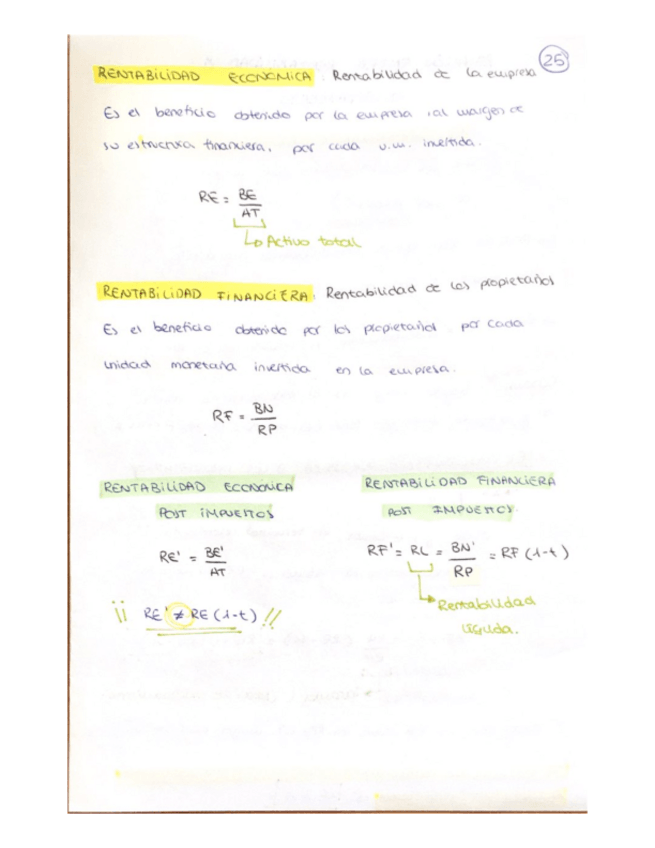 25
RENTABILIDAD ECONOMICA. Rentabilidad de la empresa
Es el beneficio obtenido por la empresa, al margen de
su estructura financiera, por cada u.m. invertida.
RE = BE / AT
↳ Activo total
RENTABILIDAD FINANCIERA. Rentabilidad de los propietarios
Es el beneficio obtenido por los propietarios por cada
unidad monetaria invertida en la empresa.
RF = BN / RP
RENTABILIDAD ECONOMICA
POST IMPUESTOS
RE' = BE' / AT
¡¡ RE' ≠ RE (1-t) !!
RENTABILIDAD FINANCIERA
POST IMPUESTOS.
RF' = RL = BN' / RP = RF (1-t)
↳ Rentabilidad
líquida.